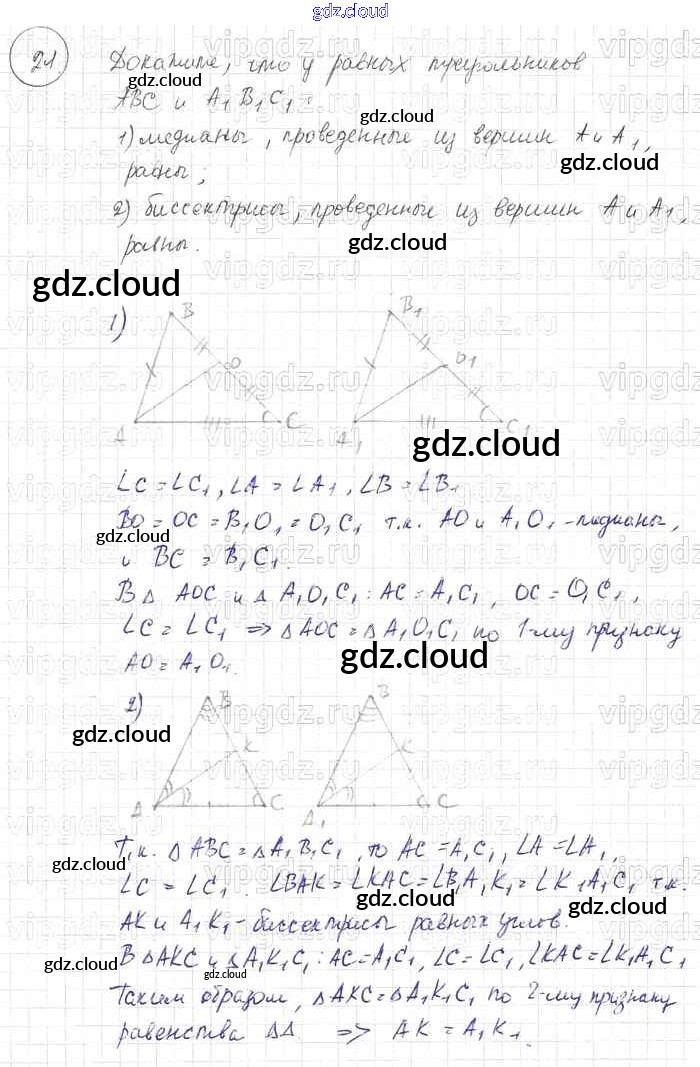 gdz.cloud
21
Докажите, что у равных треугольников
ABC и A₁B₁C₁:
1) медианы, проведенные из вершин A и A₁,
равны;
2) биссектрисы, проведенные из вершин A и A₁,
равны.
gdz.cloud
1)
B
O
A
C C
B₁
O1
A₁
C C₁
gdz.cloud
∠C = ∠C₁, ∠A = ∠A₁, ∠B = ∠B₁
BO = OC = B₁O₁ = O₁C₁ т.к. AO и A₁O₁ - медианы,
и BC = B₁C₁.
В △ AOC и △ A₁O₁C₁: AC = A₁C₁, OC = O₁C₁,
∠C = ∠C₁ => △ AOC = △ A₁O₁C₁ по 1-му признаку
AO = A₁O₁.
gdz.cloud
2)
B
K
A
C
B
K
A₁
C
Т.к. △ ABC = △ A₁B₁C₁, то AC = A₁C₁, ∠A = ∠A₁,
∠C = ∠C₁. ∠BAK = ∠KAC = ∠B₁A₁K₁ = ∠K₁A₁C₁ т.к.
AK и A₁K₁ - биссектрисы равных углов.
В △AKC и △A₁K₁C₁: AC = A₁C₁, ∠C = ∠C₁, ∠KAC = ∠K₁A₁C₁
Таким образом, △AKC = △A₁K₁C₁ по 2-му признаку
равенства △△. => AK = A₁K₁.